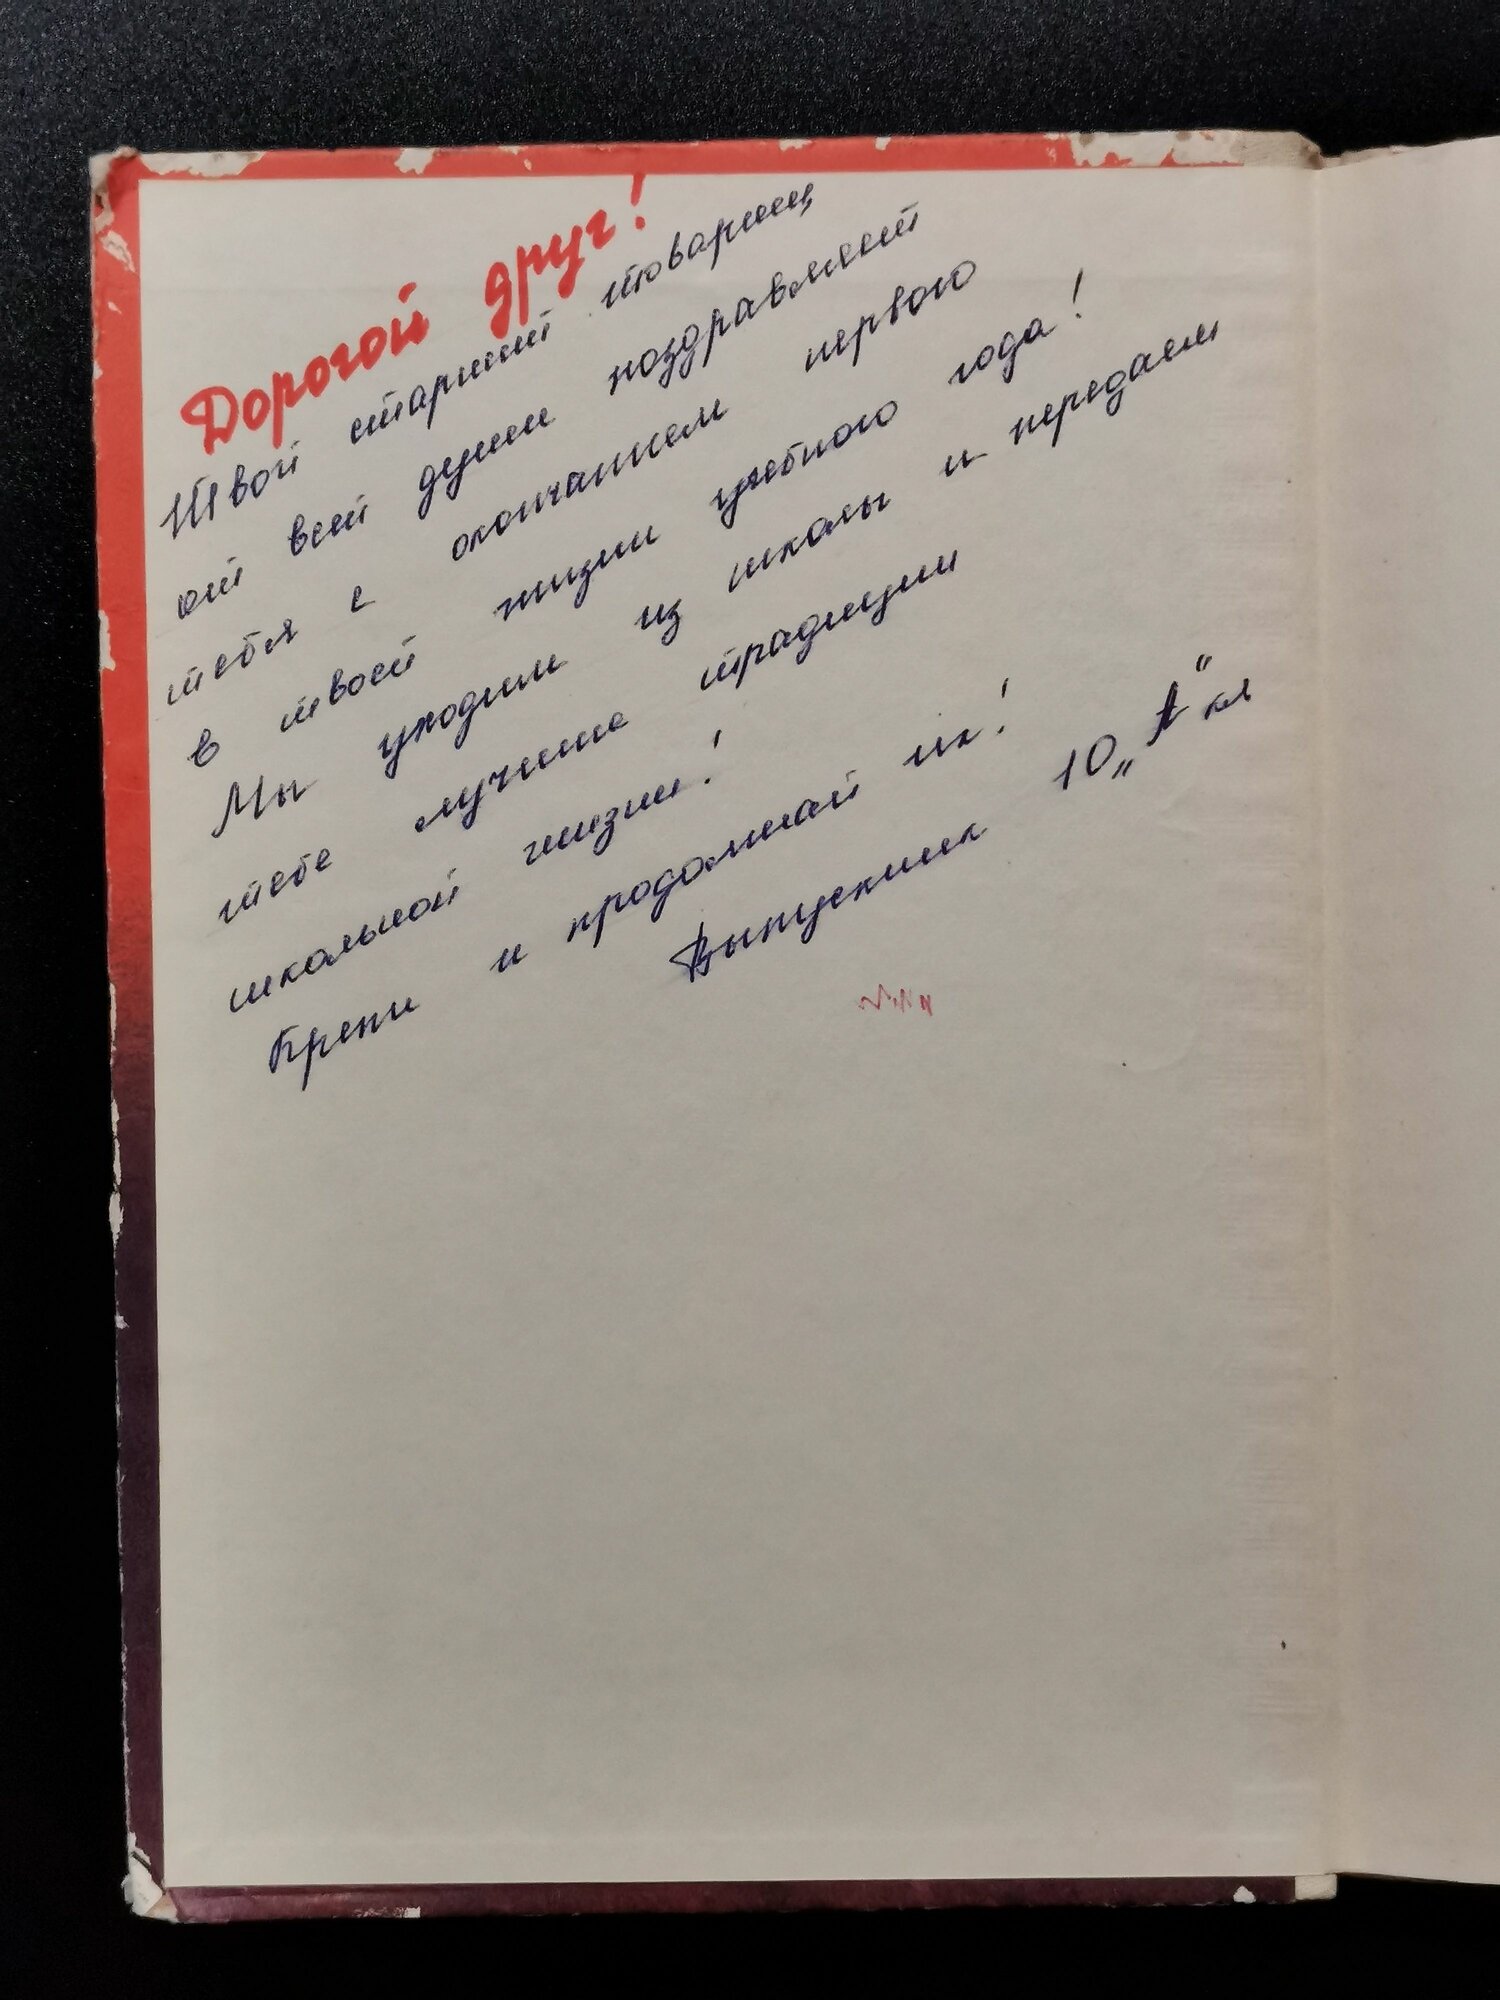 Дорогой друг!
Твой старший товарищ
от всей души поздравляет
тебя с окончанием первого
в твоей жизни учебного года!
Мы уходим из школы и передаем
тебе лучшие традиции
школьной жизни!
Крепи и продолжай их!
Выпускник 10 „А“ кл